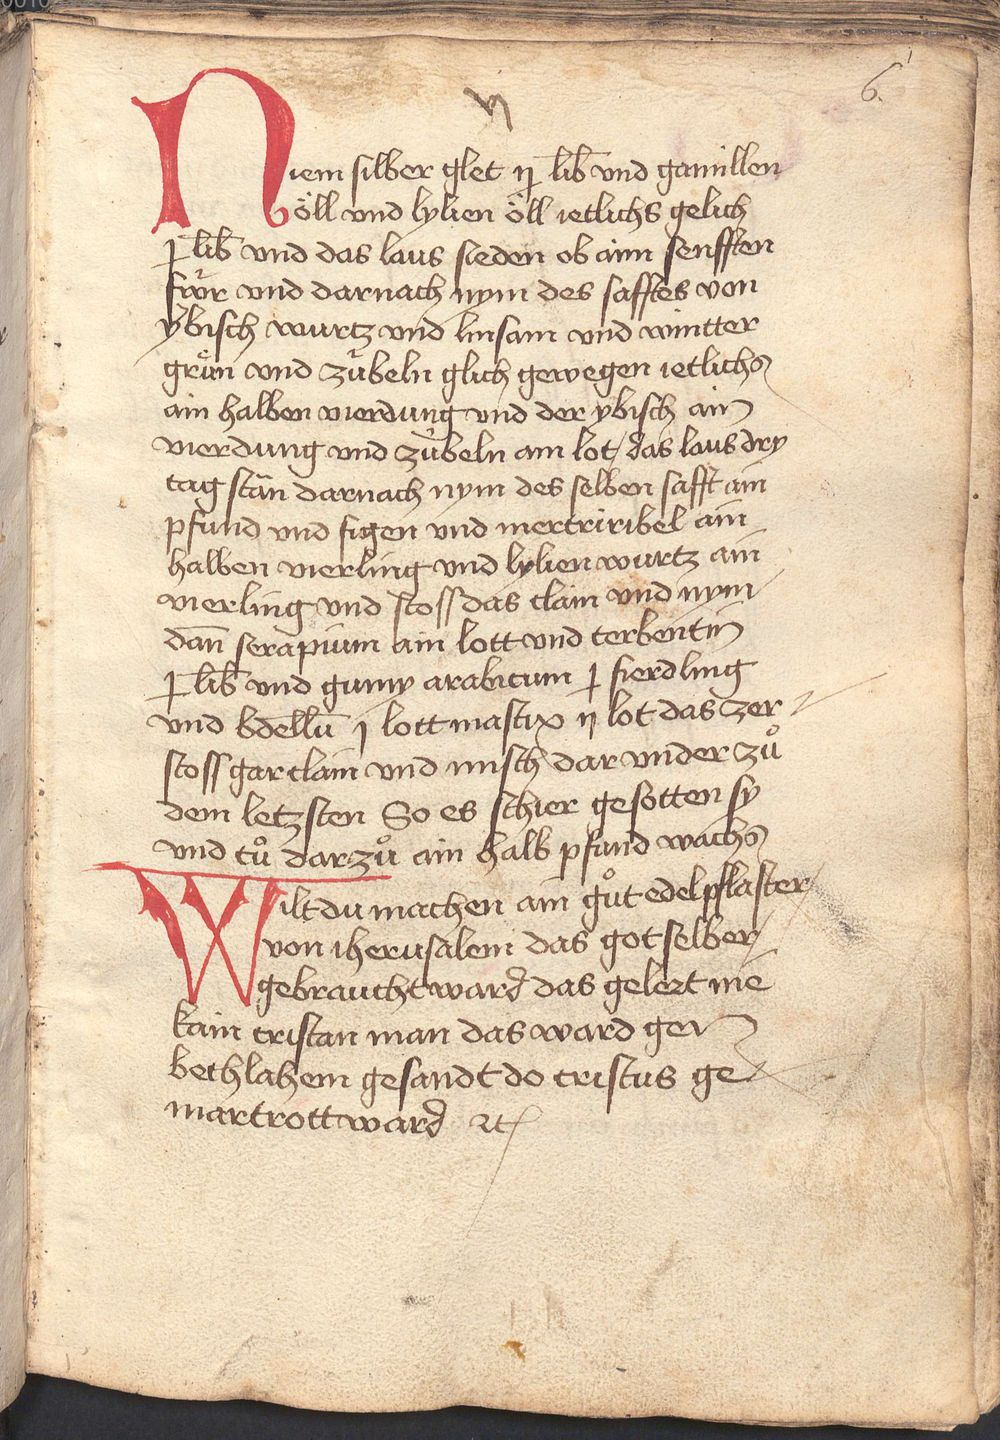 6.
vj
Niem silber glet ij lib und gamillen
öll und lylien öll ietlichs gelich
j lib und das laus sieden ob aim senfften
fwr und darnach nym des safftes von
ybisch wurtz und linsam und wintter
grün und zübeln glich gewegen ietlichs
ain halben vierdung und der ybisch ain
vierdung und zübeln ain lot / das laus dry
tag stän darnach nym des selben safft ain
pfund und figen und mertriribel ain
halben vierling und lylien wurtz ain
vierling und stoss das clain und nym
dan̄ serapium ain lott und terbentin
j lib und gumy arabicum j fierdling
und bdellū j lott mastix ij lot das zer
stoss gar clain und misch dar under zů
dem letzsten So es schier gesotten sy
und tů dar zů ain halb pfund wachs
Wilt du machen ain gůt edel pflaster
von iherusalem das got selber
gebraucht ward das gelert nie
kain cristan man das ward gen
bethlahem gesandt do cristus ge
martrott ward ꝛc